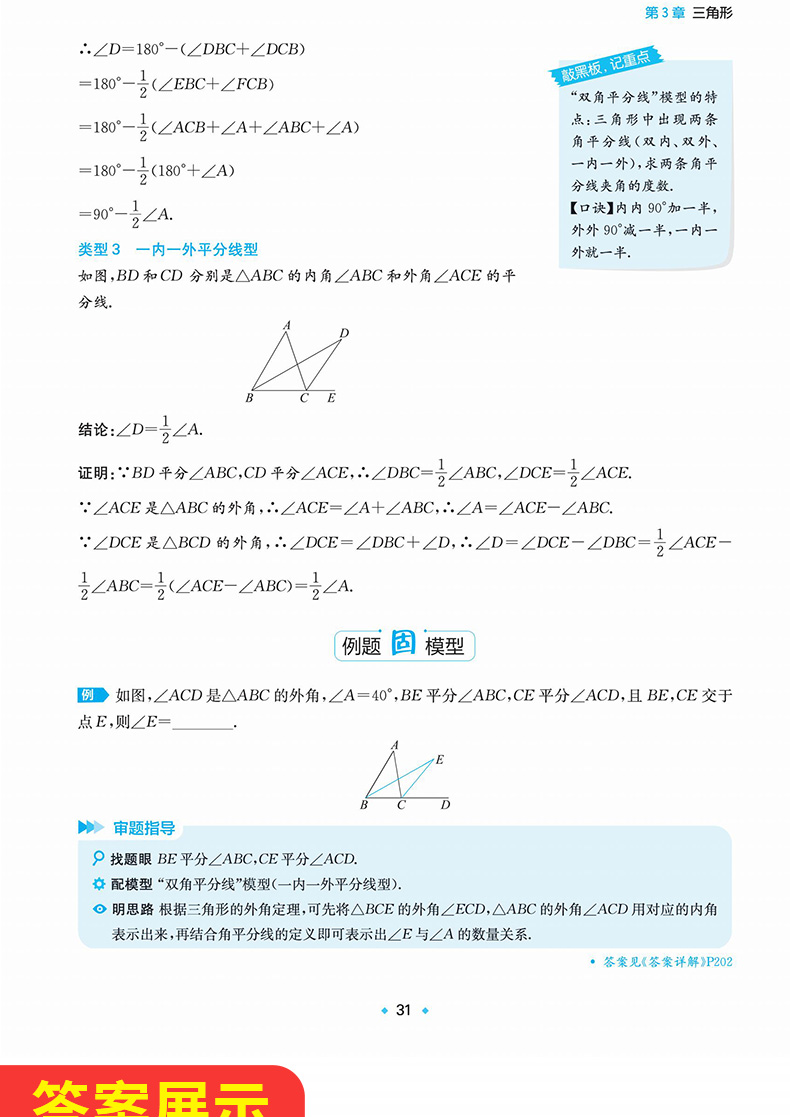 第3章 三角形
∴∠D=180°-(∠DBC+∠DCB)
=180°-1/2(∠EBC+∠FCB)
=180°-1/2(∠ACB+∠A+∠ABC+∠A)
=180°-1/2(180°+∠A)
=90°-1/2∠A.
敲黑板,记重点
“双角平分线”模型的特
点:三角形中出现两条
角平分线(双内、双外、
一内一外),求两条角平
分线夹角的度数.
【口诀】内内90°加一半,
外外90°减一半,一内一
外就一半.
类型3 一内一外平分线型
如图,BD和CD分别是△ABC的内角∠ABC和外角∠ACE的平
分线.
A
D
B C E
结论:∠D=1/2∠A.
证明:∵BD平分∠ABC,CD平分∠ACE,∴∠DBC=1/2∠ABC,∠DCE=1/2∠ACE.
∵∠ACE是△ABC的外角,∴∠ACE=∠A+∠ABC,∴∠A=∠ACE-∠ABC.
∵∠DCE是△BCD的外角,∴∠DCE=∠DBC+∠D,∴∠D=∠DCE-∠DBC=1/2∠ACE-
1/2∠ABC=1/2(∠ACE-∠ABC)=1/2∠A.
例题 固 模型
例 如图,∠ACD是△ABC的外角,∠A=40°,BE平分∠ABC,CE平分∠ACD,且BE,CE交于
点E,则∠E=________.
A
E
B C D
审题指导
找题眼 BE平分∠ABC,CE平分∠ACD.
配模型 “双角平分线”模型(一内一外平分线型).
明思路 根据三角形的外角定理,可先将△BCE的外角∠ECD,△ABC的外角∠ACD用对应的内角
表示出来,再结合角平分线的定义即可表示出∠E与∠A的数量关系.
• 答案见《答案详解》P202
31
答案展示